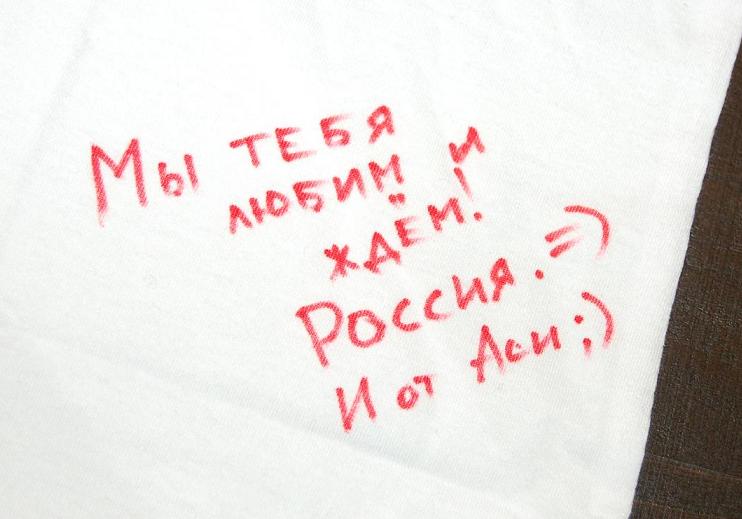 Мы ТЕБЯ
ЛЮБИМ И
ЖДЁМ!
РОССИЯ. =)
И от Аси ;)